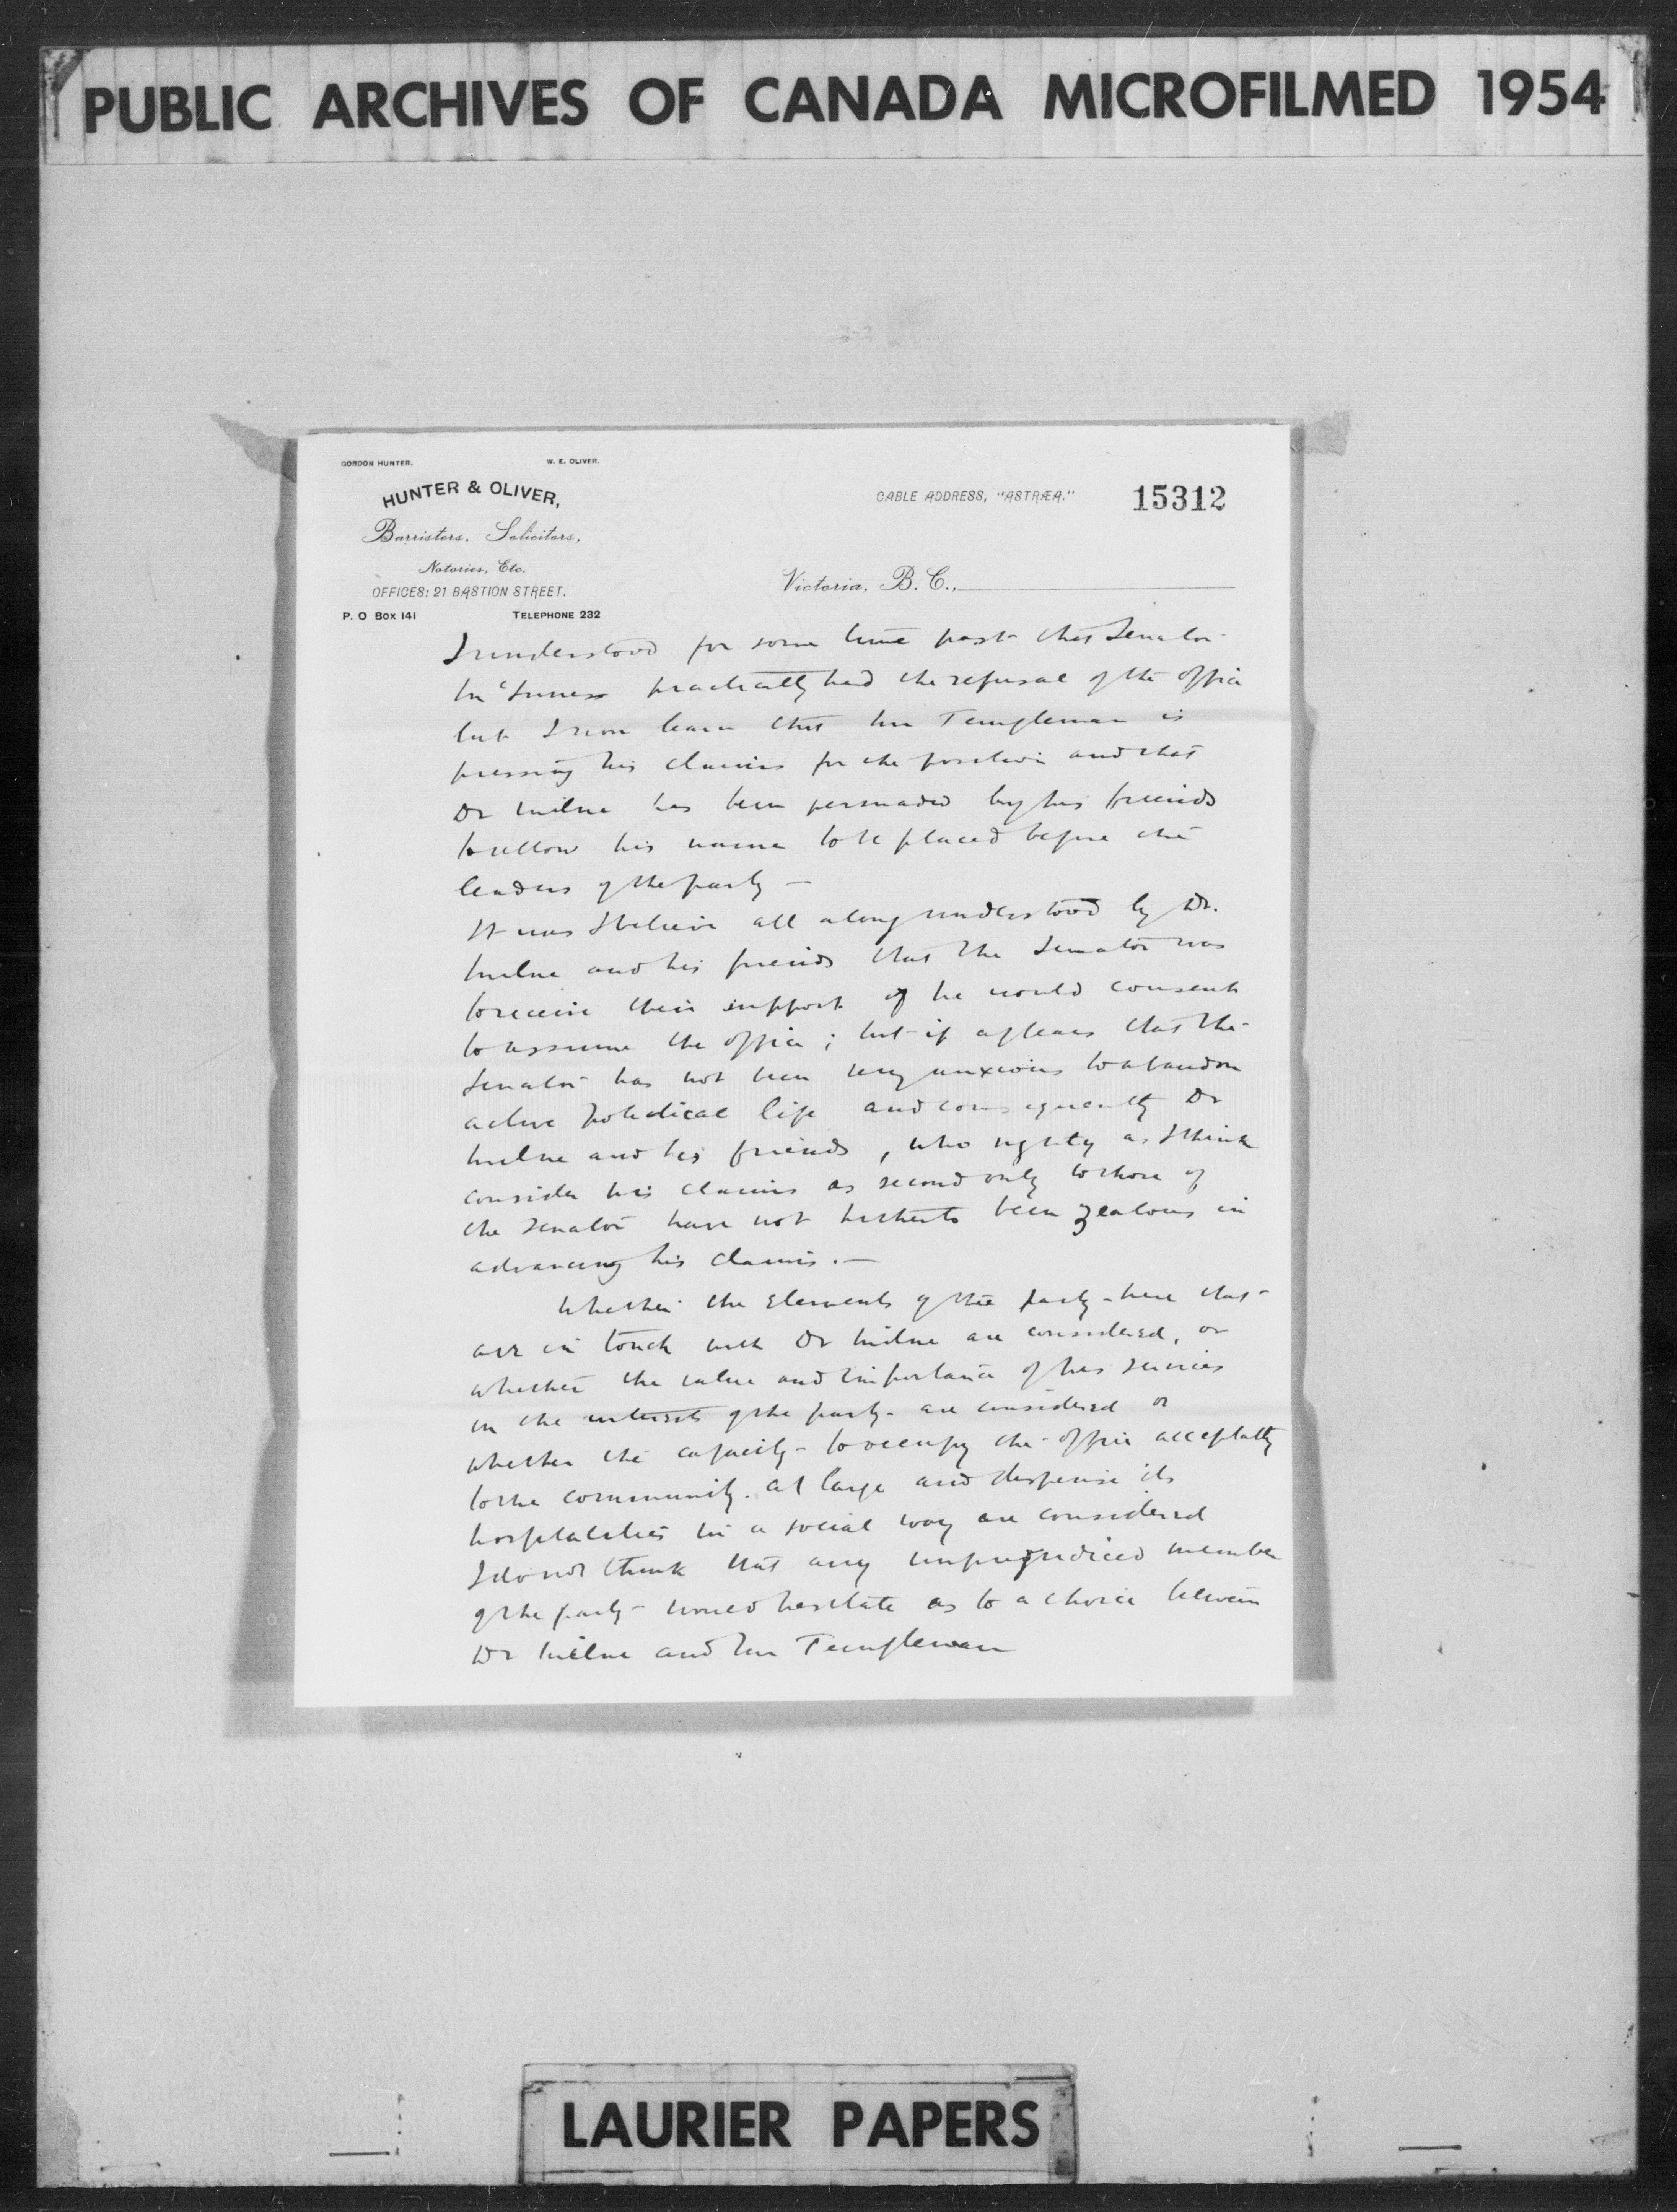 PUBLIC ARCHIVES OF CANADA MICROFILMED 1954
GORDON HUNTER. W. E. OLIVER.
HUNTER & OLIVER,
Barristers, Solicitors,
Notaries, Etc.
OFFICES: 21 BASTION STREET.
P. O Box 141 TELEPHONE 232
CABLE ADDRESS, "ASTRÆA."
15312
Victoria, B. C.,
I understood for some time past that Senator
McInnes practically had the refusal of the office
but I now learn that Mr Templeman is
pressing his claims for the position and that
Dr Milne has been persuaded by his friends
to allow his name to be placed before the
leaders of the party —
It was I believe all along understood by Dr.
Milne and his friends that the Senator was
to receive their support if he would consent
to assume the office ; but it appears that the
Senator has not been very anxious to abandon
active political life and consequently Dr
Milne and his friends , who rightly as I think
consider his claims as second only to those of
the Senator have not hitherto been zealous in
advancing his claims. —
Whether the elements of the party here that
are in touch with Dr Milne are considered, or
whether the value and importance of his services
in the interests of the party are considered or
whether the capacity to occupy the office acceptably
to the community at large and dispense its
hospitalities in a social way are considered
I do not think that any unprejudiced member
of the party would hesitate as to a choice between
Dr Milne and Mr Templeman
LAURIER PAPERS